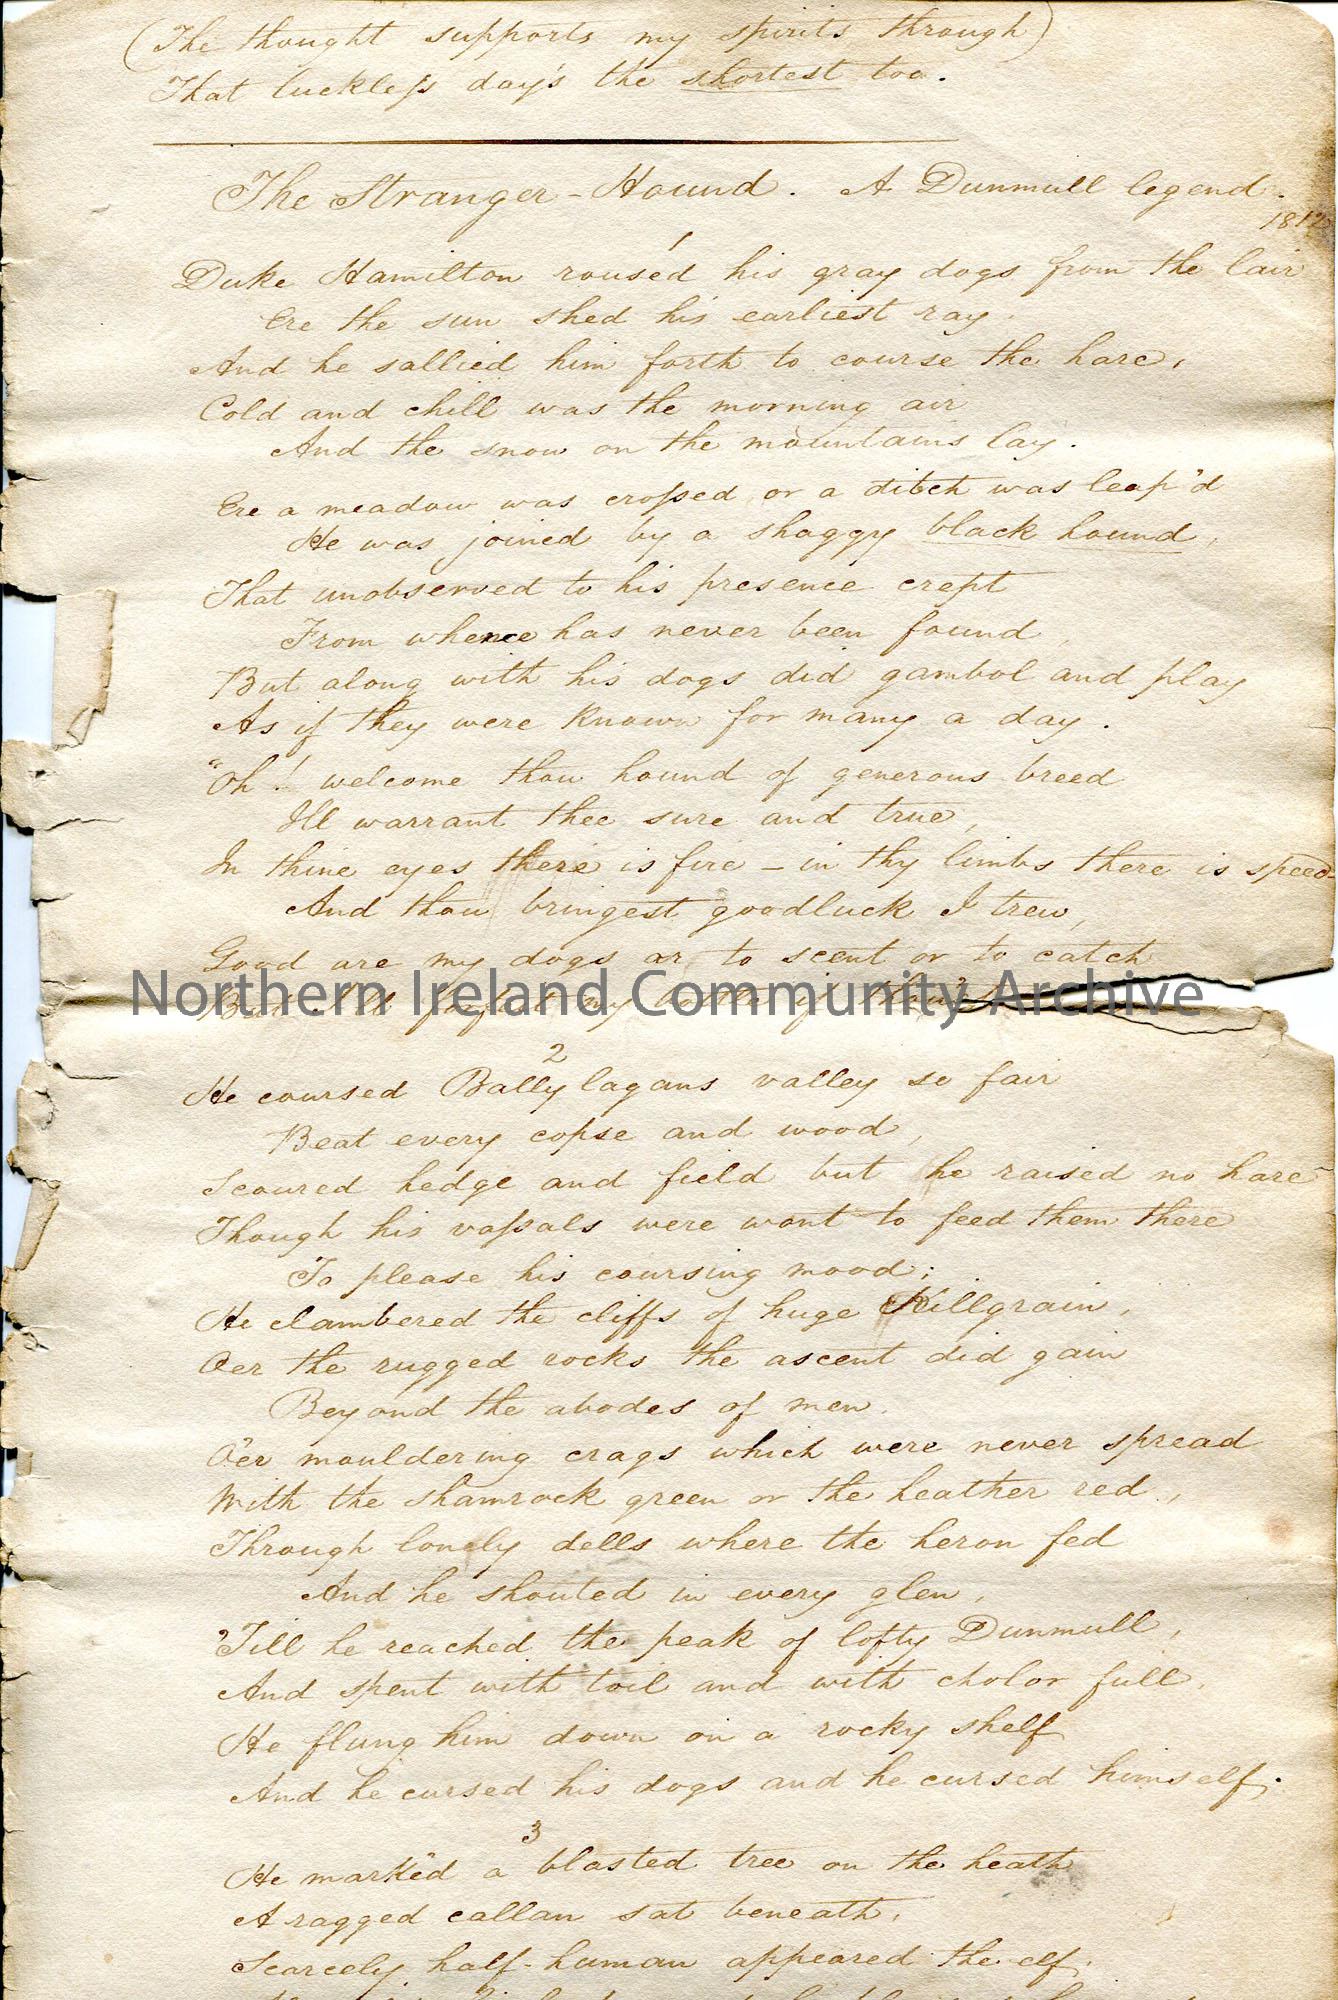 (The thought supports my spirits through)
That luckless day's the shortest too.
The Stranger-Hound. A Dunmull legend.
181
1
Duke Hamilton rous'ed his gray dogs from the lair
Ere the sun shed his earliest ray.
And he sallied him forth to course the hare,
Cold and chill was the morning air
And the snow on the mountains lay.
Ere a meadow was crossed or a ditch was leap'd
He was joined by a shaggy black hound,
That unobserved to his presence crept
From whence has never been found,
But along with his dogs did gambol and play
As if they were known for many a day.
"Oh! welcome thou hound of generous breed
Ill warrant thee sure and true,
In thine eyes there is fire – in thy limbs there is speed
And thou bringest goodluck I trew,
Good are my dogs or to scent or to catch
Northern Ireland Community Archive
But I'll my if thou
2
He coursed Ballylagans valley so fair
Beat every copse and wood,
Scoured hedge and field but he raised no hare
Though his vassals were wont to feed them there
To please his coursing mood;
He clambered the cliffs of huge Killgrain,
Oer the rugged rocks the ascent did gain
Beyond the abodes of men.
O'er mouldering crags which were never spread
With the shamrock green or the heather red,
Through lonely dells where the heron fed
And he shouted in every glen,
'Till he reached the peak of lofty Dunmull,
And spent with toil and with cholor full,
He flung him down on a rocky shelf
And he cursed his dogs and he cursed himself.
3
He mark'd a blasted tree on the heath
A ragged callan sat beneath,
Scarcely half-human appeared the elf,